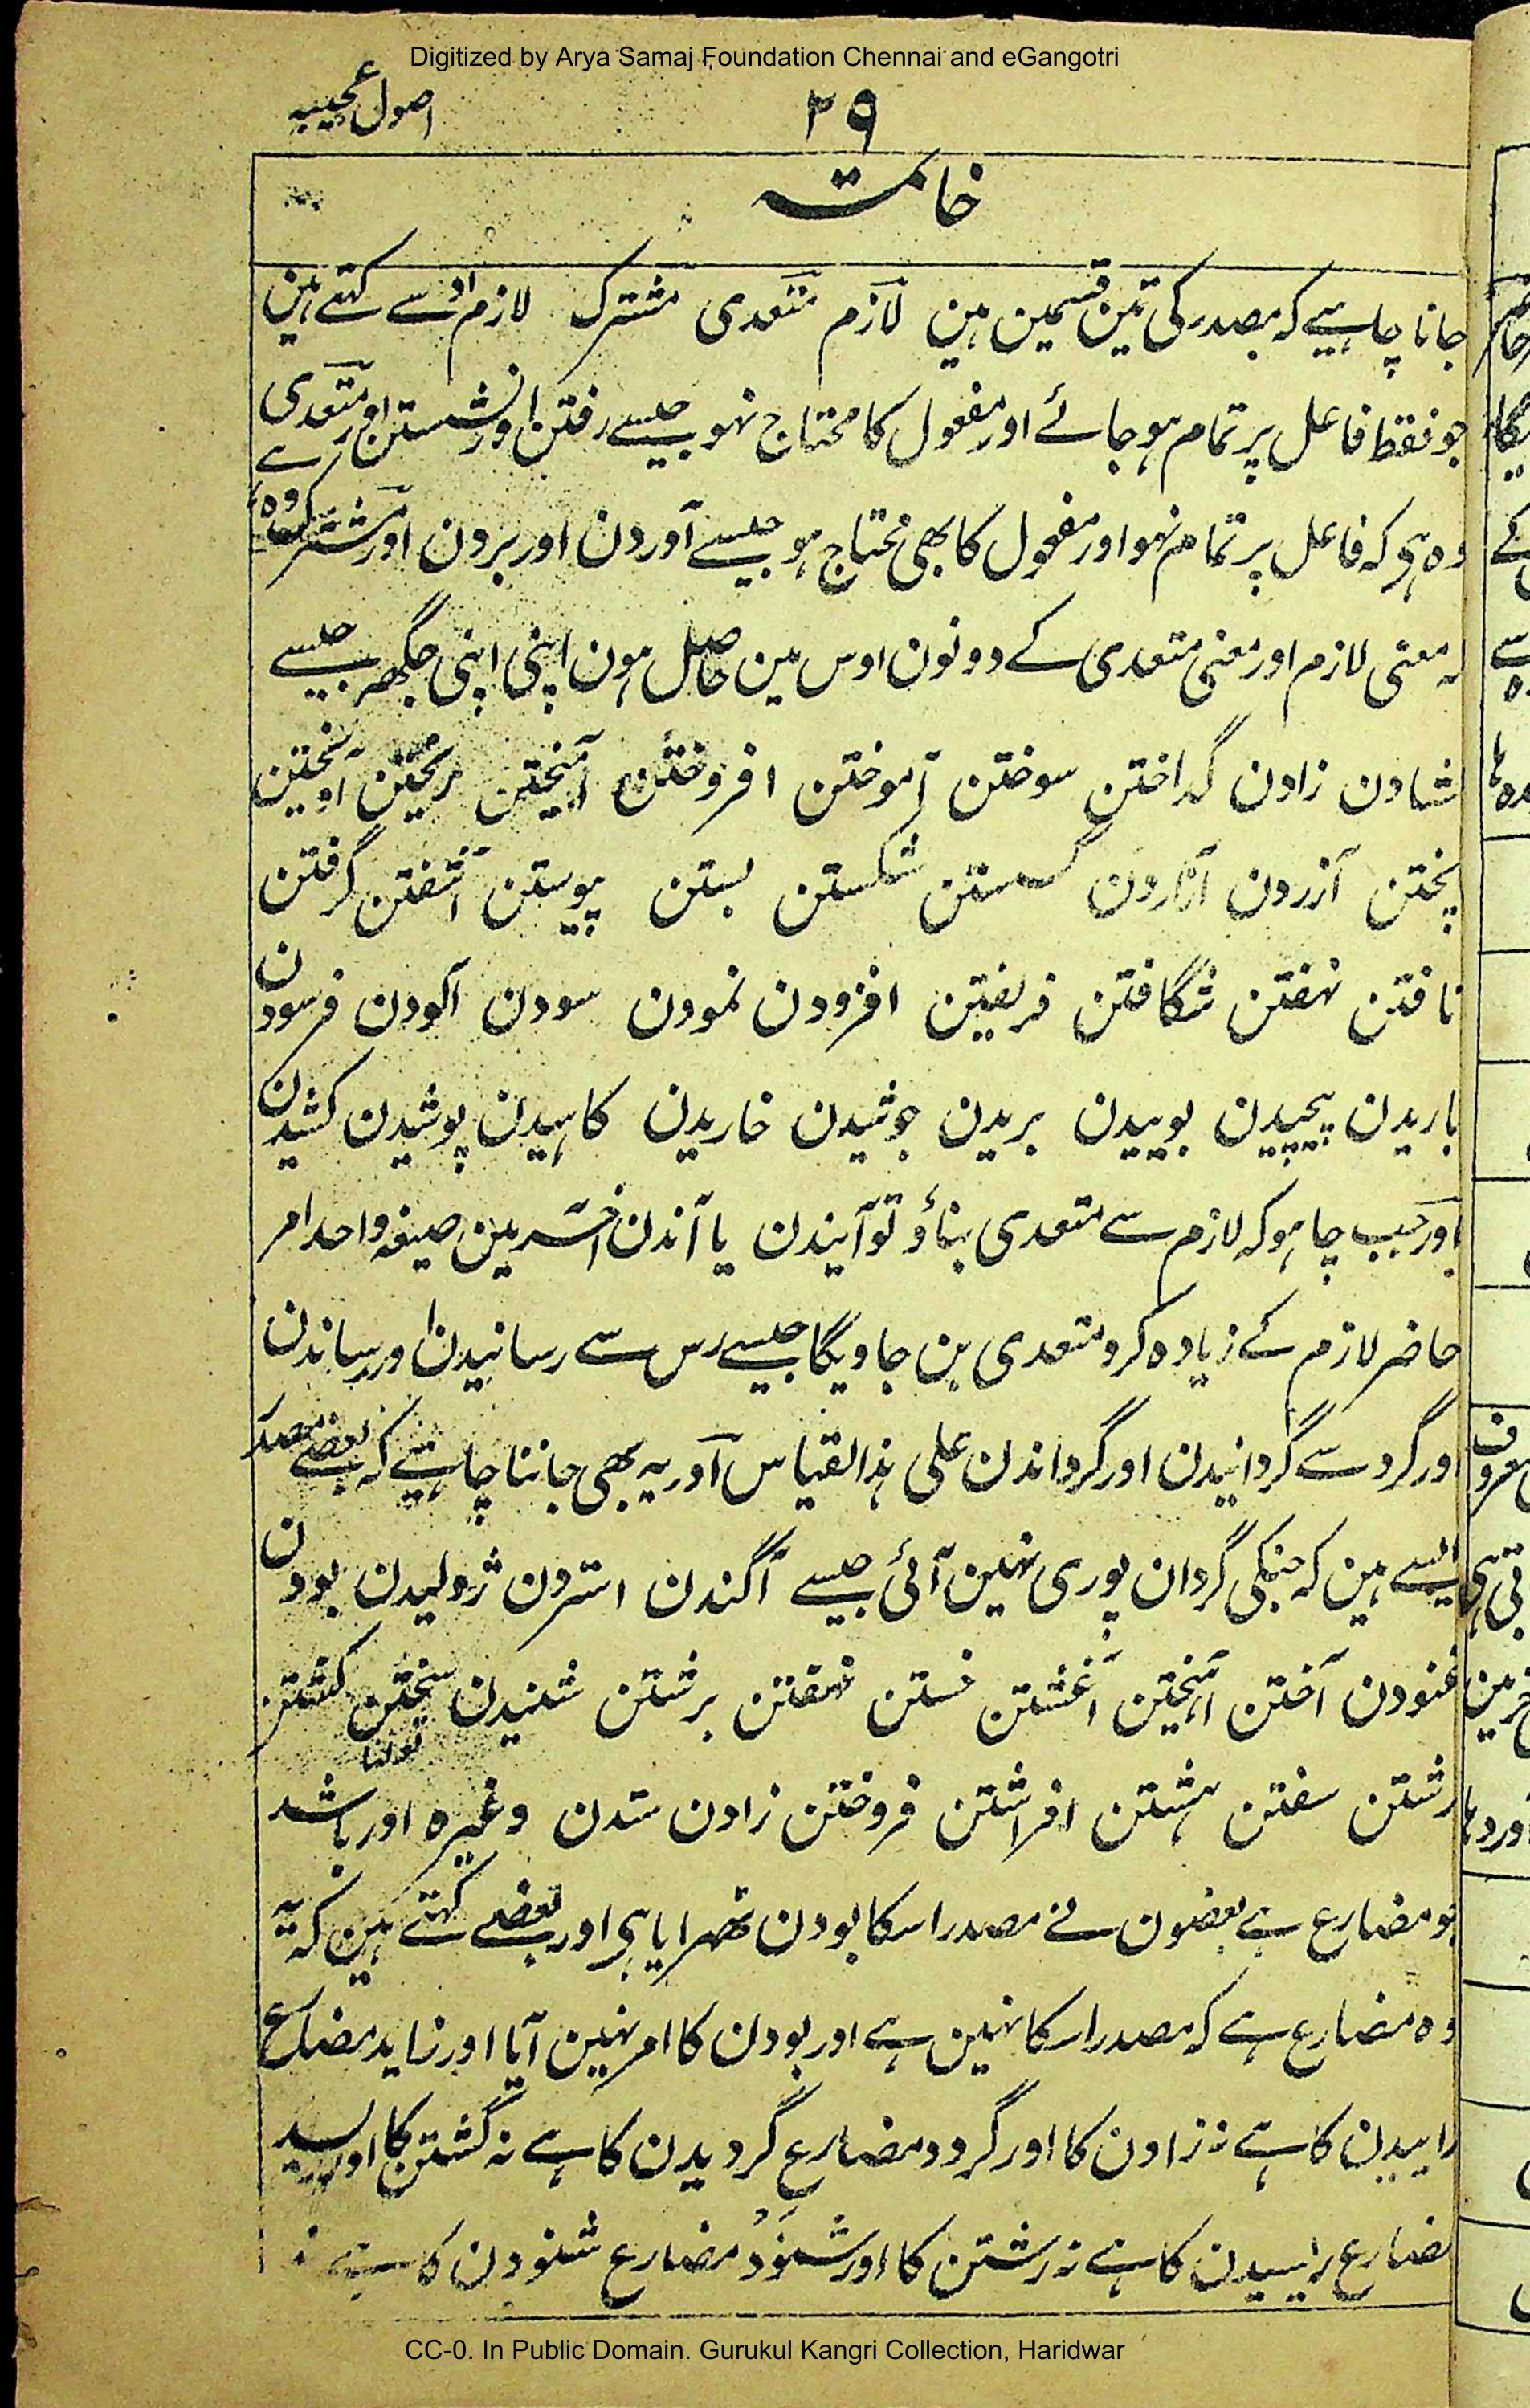 Digitized by Arya Samaj Foundation Chennai and eGangotri
اصول عجیبہ
۲۹
خاتمہ
جانا چاہیے کہ مصدر کی تین قسمین ہین لازم متعدی مشترک لازم اوسے کہتے ہین
جو فقط فاعل پر تمام ہو جائے اور مفعول کا محتاج نہو جیسے رفتن اور نشستن اور متعدی اوسے
وہ ہو کہ فاعل پر تمام نہو اور مفعول کا بھی محتاج ہو جیسے آوردن اور بردن اور مشترک وہ
کہ معنی لازم اور معنی متعدی کے دونون اوس مین حاصل ہون اپنی اپنی جگھہ جیسے
زادن گداختن سوختن آموختن افروختن آمیختن ریختن آویختن
پختن آزردن آزاردن گسستن شکستن بستن پیوستن آشفتن گرفتن
تافتن نہفتن شگافتن فریفتن افزودن نمودن سودن آلودن فرسودن
باریدن پیچیدن بوییدن بریدن جوشیدن خاریدن کاہیدن پوشیدن کشیدن
اور جب چاہو کہ لازم سے متعدی بناؤ تو آنیدن یا آندن آخر مین صیغہ واحد امر
حاضر لازم کے زیادہ کرو متعدی بن جاویگا جیسے رس سے رسانیدن اور رساندن
اور گرد سے گردانیدن اور گرداندن علی ہذا القیاس اور یہ بھی جاننا چاہیے کہ بعضے مصدر
ایسے ہین کہ جنکی گردان پوری نہین آئی جیسے آگندن استردن ژولیدن بودن
غنودن آختن آہیختن آغشتن خستن خفتن برشتن شنیدن سختن کشتن
تولنا
رشتن سفتن ہشتن افراشتن فروختن زادن ستدن وغیرہ اور باشد
جو مضارع ہے بعضون نے مصدر اسکا بودن ٹھہرایا ہی اور بعضے کہتے ہین کہ یہ
وہ مضارع ہے کہ مصدر اسکا نہین ہے اور بودن کا امر نہین آیا اور زاید مضارع
زاییدن کا ہے نہ زادن کا اور گردد مضارع گردیدن کا ہے نہ گشتن کا اور ریسد
مضارع ریسیدن کا ہے نہ رشتن کا اور شنود مضارع شنودن کا ہے نہ
CC-0. In Public Domain. Gurukul Kangri Collection, Haridwar